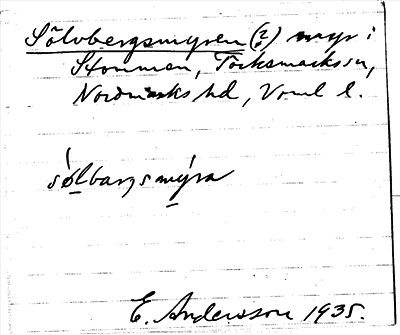 Sölvbergsmyren (?) myr i
Stommen, Töcksmarks sn,
Nordmarks hd, Vrml l.
sølbargsmýra
E. Andersson 1935.